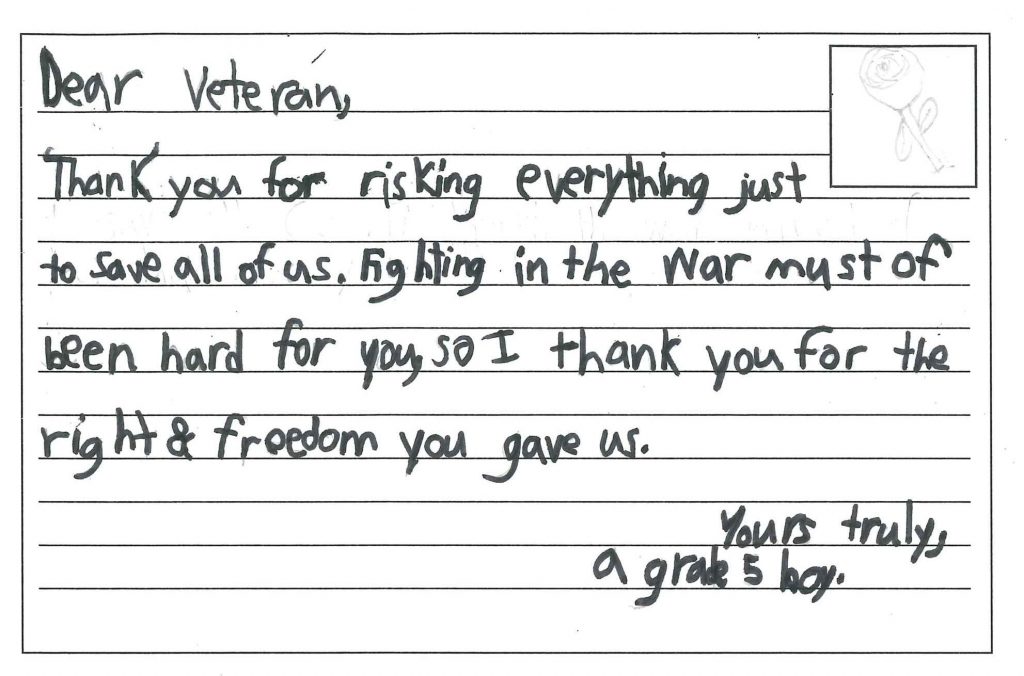 Dear Veteran,
Thank you for risking everything just
to save all of us. Fighting in the war must of
been hard for you, so I thank you for the
right & freedom you gave us.
Yours truly,
a grade 5 boy.